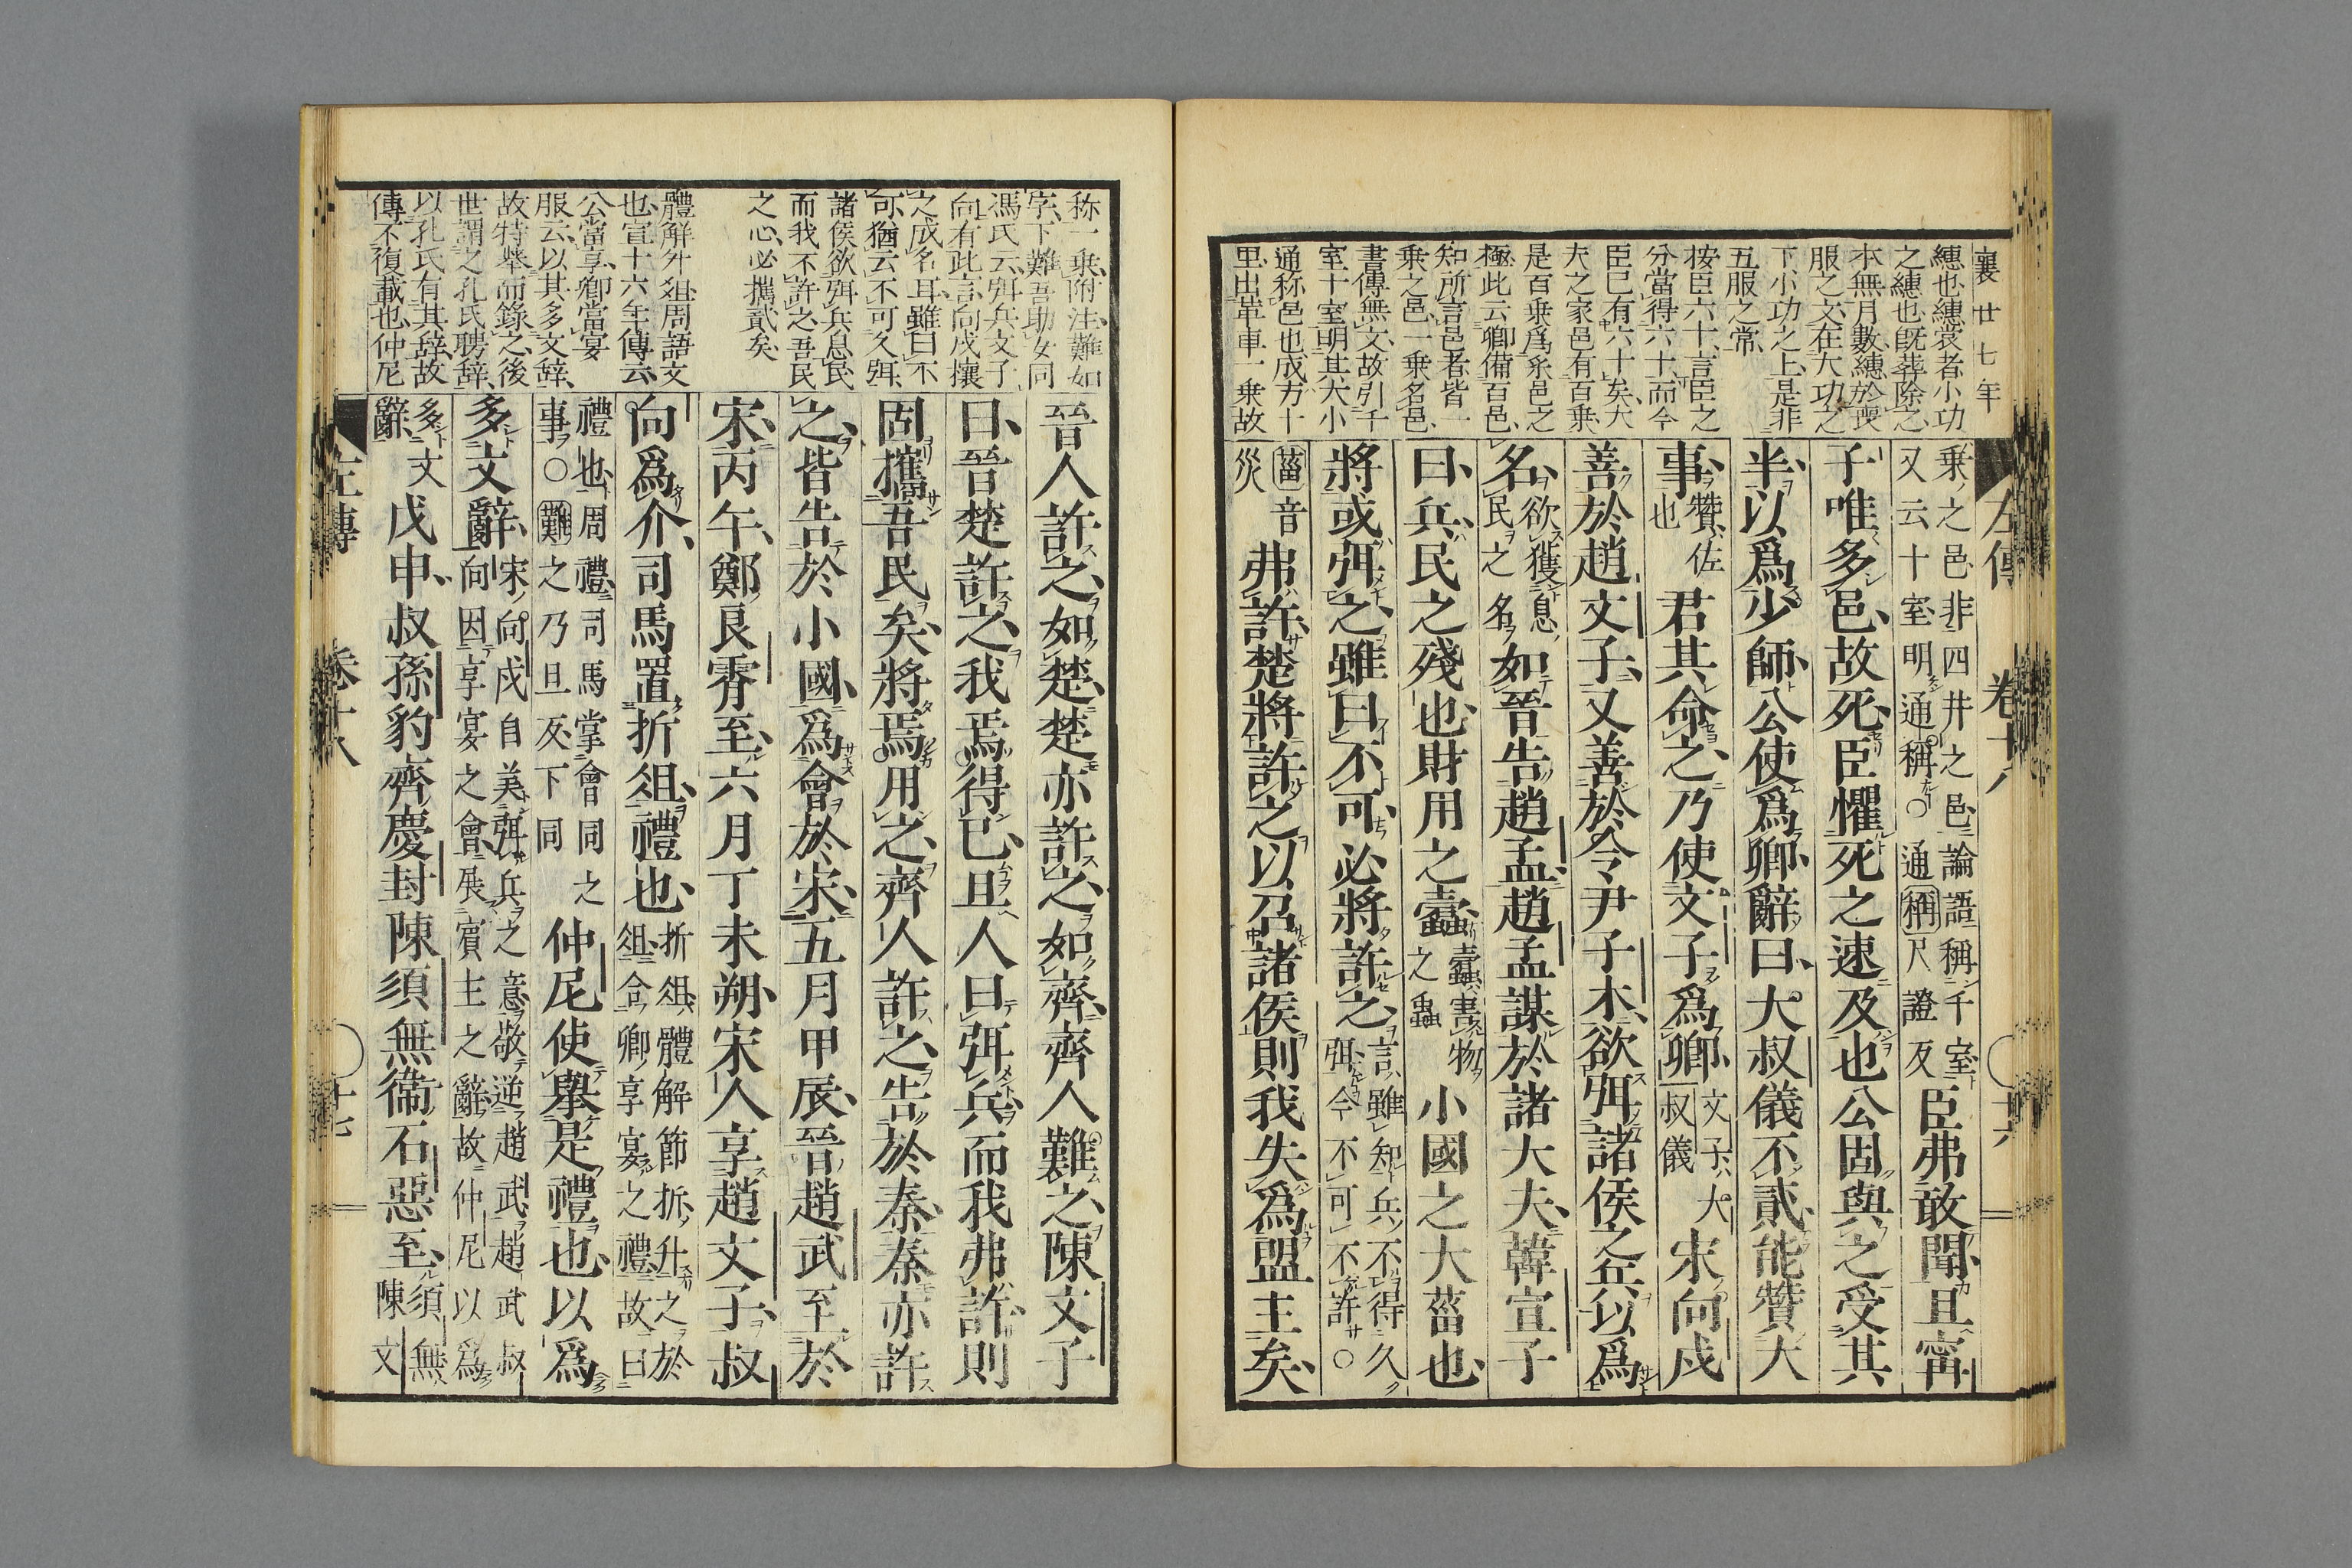 襄廿七年
繐也繐裳者小功
之繐也既葬除之
本無月數繐於喪
服之文在大功之
下小功之上是非
五服之常
按臣六十言臣之
分當得六十而今
臣已有六十矣大
夫之家邑有百乗
是百乗爲采邑之
極此云卿備百邑
知所言邑者皆一
乗之邑一乗名邑
書傳無文故引千
室十室明其大小
通称邑也成方十
里出革車一乗故
左傳 卷十八 十六
乗之邑非四井之邑論語稱千室
又云十室明通稱○通稱尺證反
臣弗敢聞且甯
子唯多邑故死臣懼死之速及也公固與之受其
半以爲少師公使爲卿辭曰大叔儀不貳能贊大
事
贊佐
也
君其命之乃使文子爲卿
文子大
叔儀
宋向戌
善於趙文子又善於令尹子木欲弭諸侯之兵以爲
名
欲獲息
民之名
如晉告趙孟趙孟謀於諸大夫韓宣子
曰兵民之殘也財用之蠹
蠹害物
之蟲
小國之大菑也
將或弭之雖曰不可必將許之
言雖知兵不得久
弭今不可不許○
菑音
災
弗許楚將許之以召諸侯則我失爲盟主矣
称一乗附注難如
字下難吾助女同
馮氏云弭兵文子
向有此言向戌攘
之成名耳雖曰不
可猶云不可久弭
諸侯欲弭兵息民
而我不許之吾民
之心必攜貳矣
體解外俎周語文
也宣十六年傳云
公當享卿當宴
服云以其多文辭
故特舉而錄之後
世謂之孔氏聘辭
以孔氏有其辭故
傳不復載也仲尼
晉人許之如楚楚亦許之如齊齊人難之陳文子
曰晉楚許之我焉得已且人曰弭兵而我弗許則
固攜吾民矣將焉用之齊人許之告於秦秦亦許
之皆告於小國爲會於宋五月甲辰晉趙武至於
宋丙午鄭良霄至六月丁未朔宋人享趙文子叔
向爲介司馬置折俎禮也
折俎體解節折升之於
俎合卿享宴之禮故曰
禮也周禮司馬掌會同之
事○難之乃旦反下同
仲尼使舉是禮也以爲
多文辭
宋向戌自美弭兵之意敬逆趙武趙武叔
向因享宴之會展賓主之辭故仲尼以爲
多文
辭
戊申叔孫豹齊慶封陳須無衞石惡至
須無
陳文
左傳 卷十八 十七